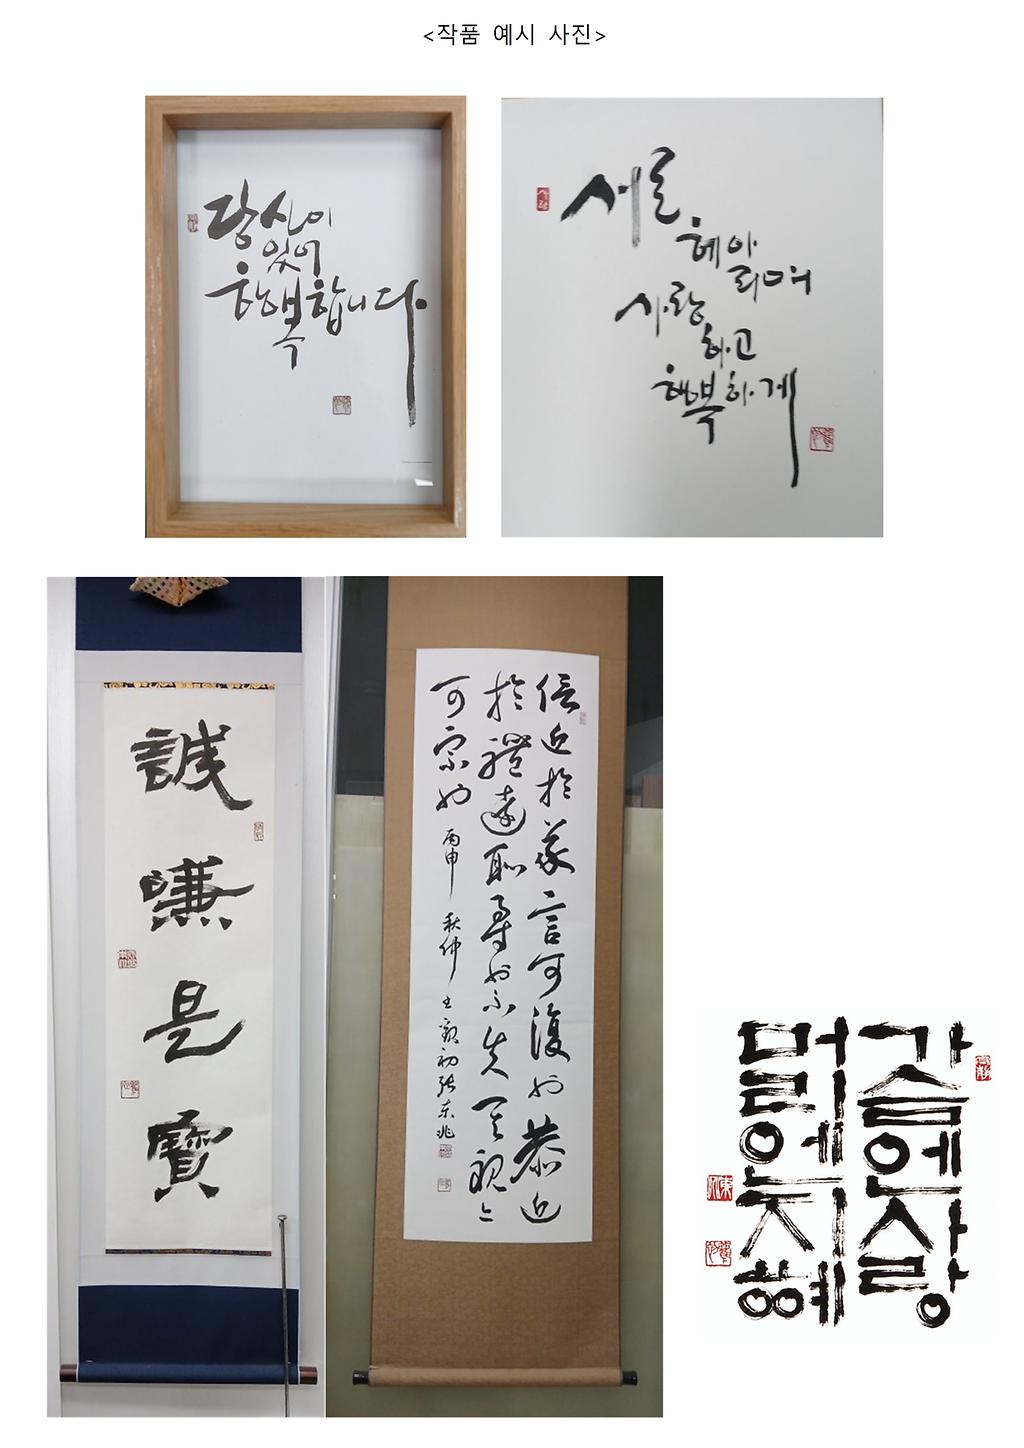 <작품 예시 사진>
당신이
있어
행복합니다
서로
헤아
리며
사랑
하고
행복하게
誠
是
寶
信近於義言可復也恭近
於禮遠恥辱也不失其親亦
可宗也 丙申 秋仲 張東兆
가슴엔사랑
머리엔지혜